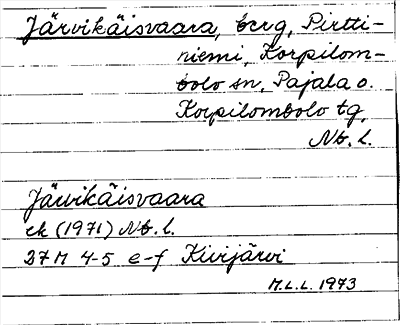 Järvikäisvaara, berg, Pirtti-
niemi, Korpilom-
bolo sn, Pajala o.
Korpilombolo tg,
Nb. l.
Järvikäisvaara
ek (1971) Nb. l.
27M 4-5 e-f Kiirijärvi
M.L.L. 1973